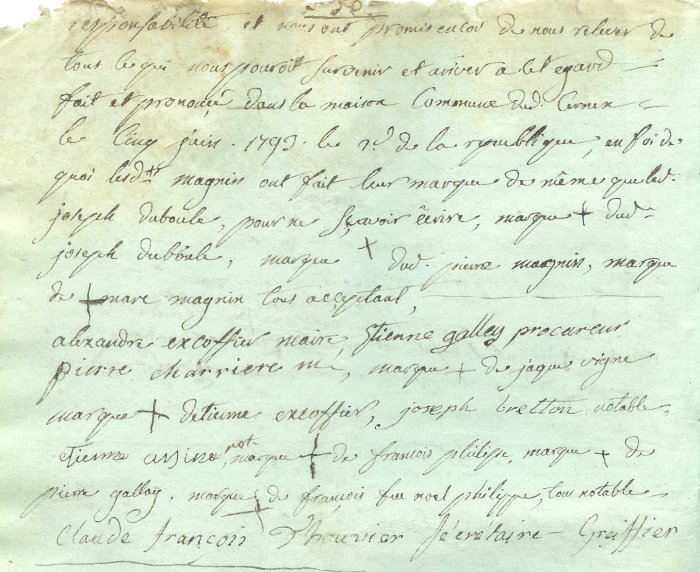 50
responsabilité et nous ont promis encoi de nous relever de
tous ce qui nous pouroit survenir et ariver a cet egard
fait et prononcé dans la maison Commune dud. Cernex
le Cinq juin 1793 le 2d de la republique, en foi de
quoi lesdts magnin ont fait leur marque de même que led.
joseph duboule, pour ne sçavoir écrire, marque + dud.
joseph duboule, marque + dud. pierre magnin, marque
de + marc magnin tous acceptant,
alexandre excoffier maire, Etienne gallay procureur
pierre charriere m, marque + de jaque vigne
marque + detienne excoffier, joseph bretton notable,
etienne assine not. marque + de francois philipe, marque + de
pierre gallay, marque + de francois feu noel philippe, tous notable
Claude françois Thouvier Sécretaire Greiffier